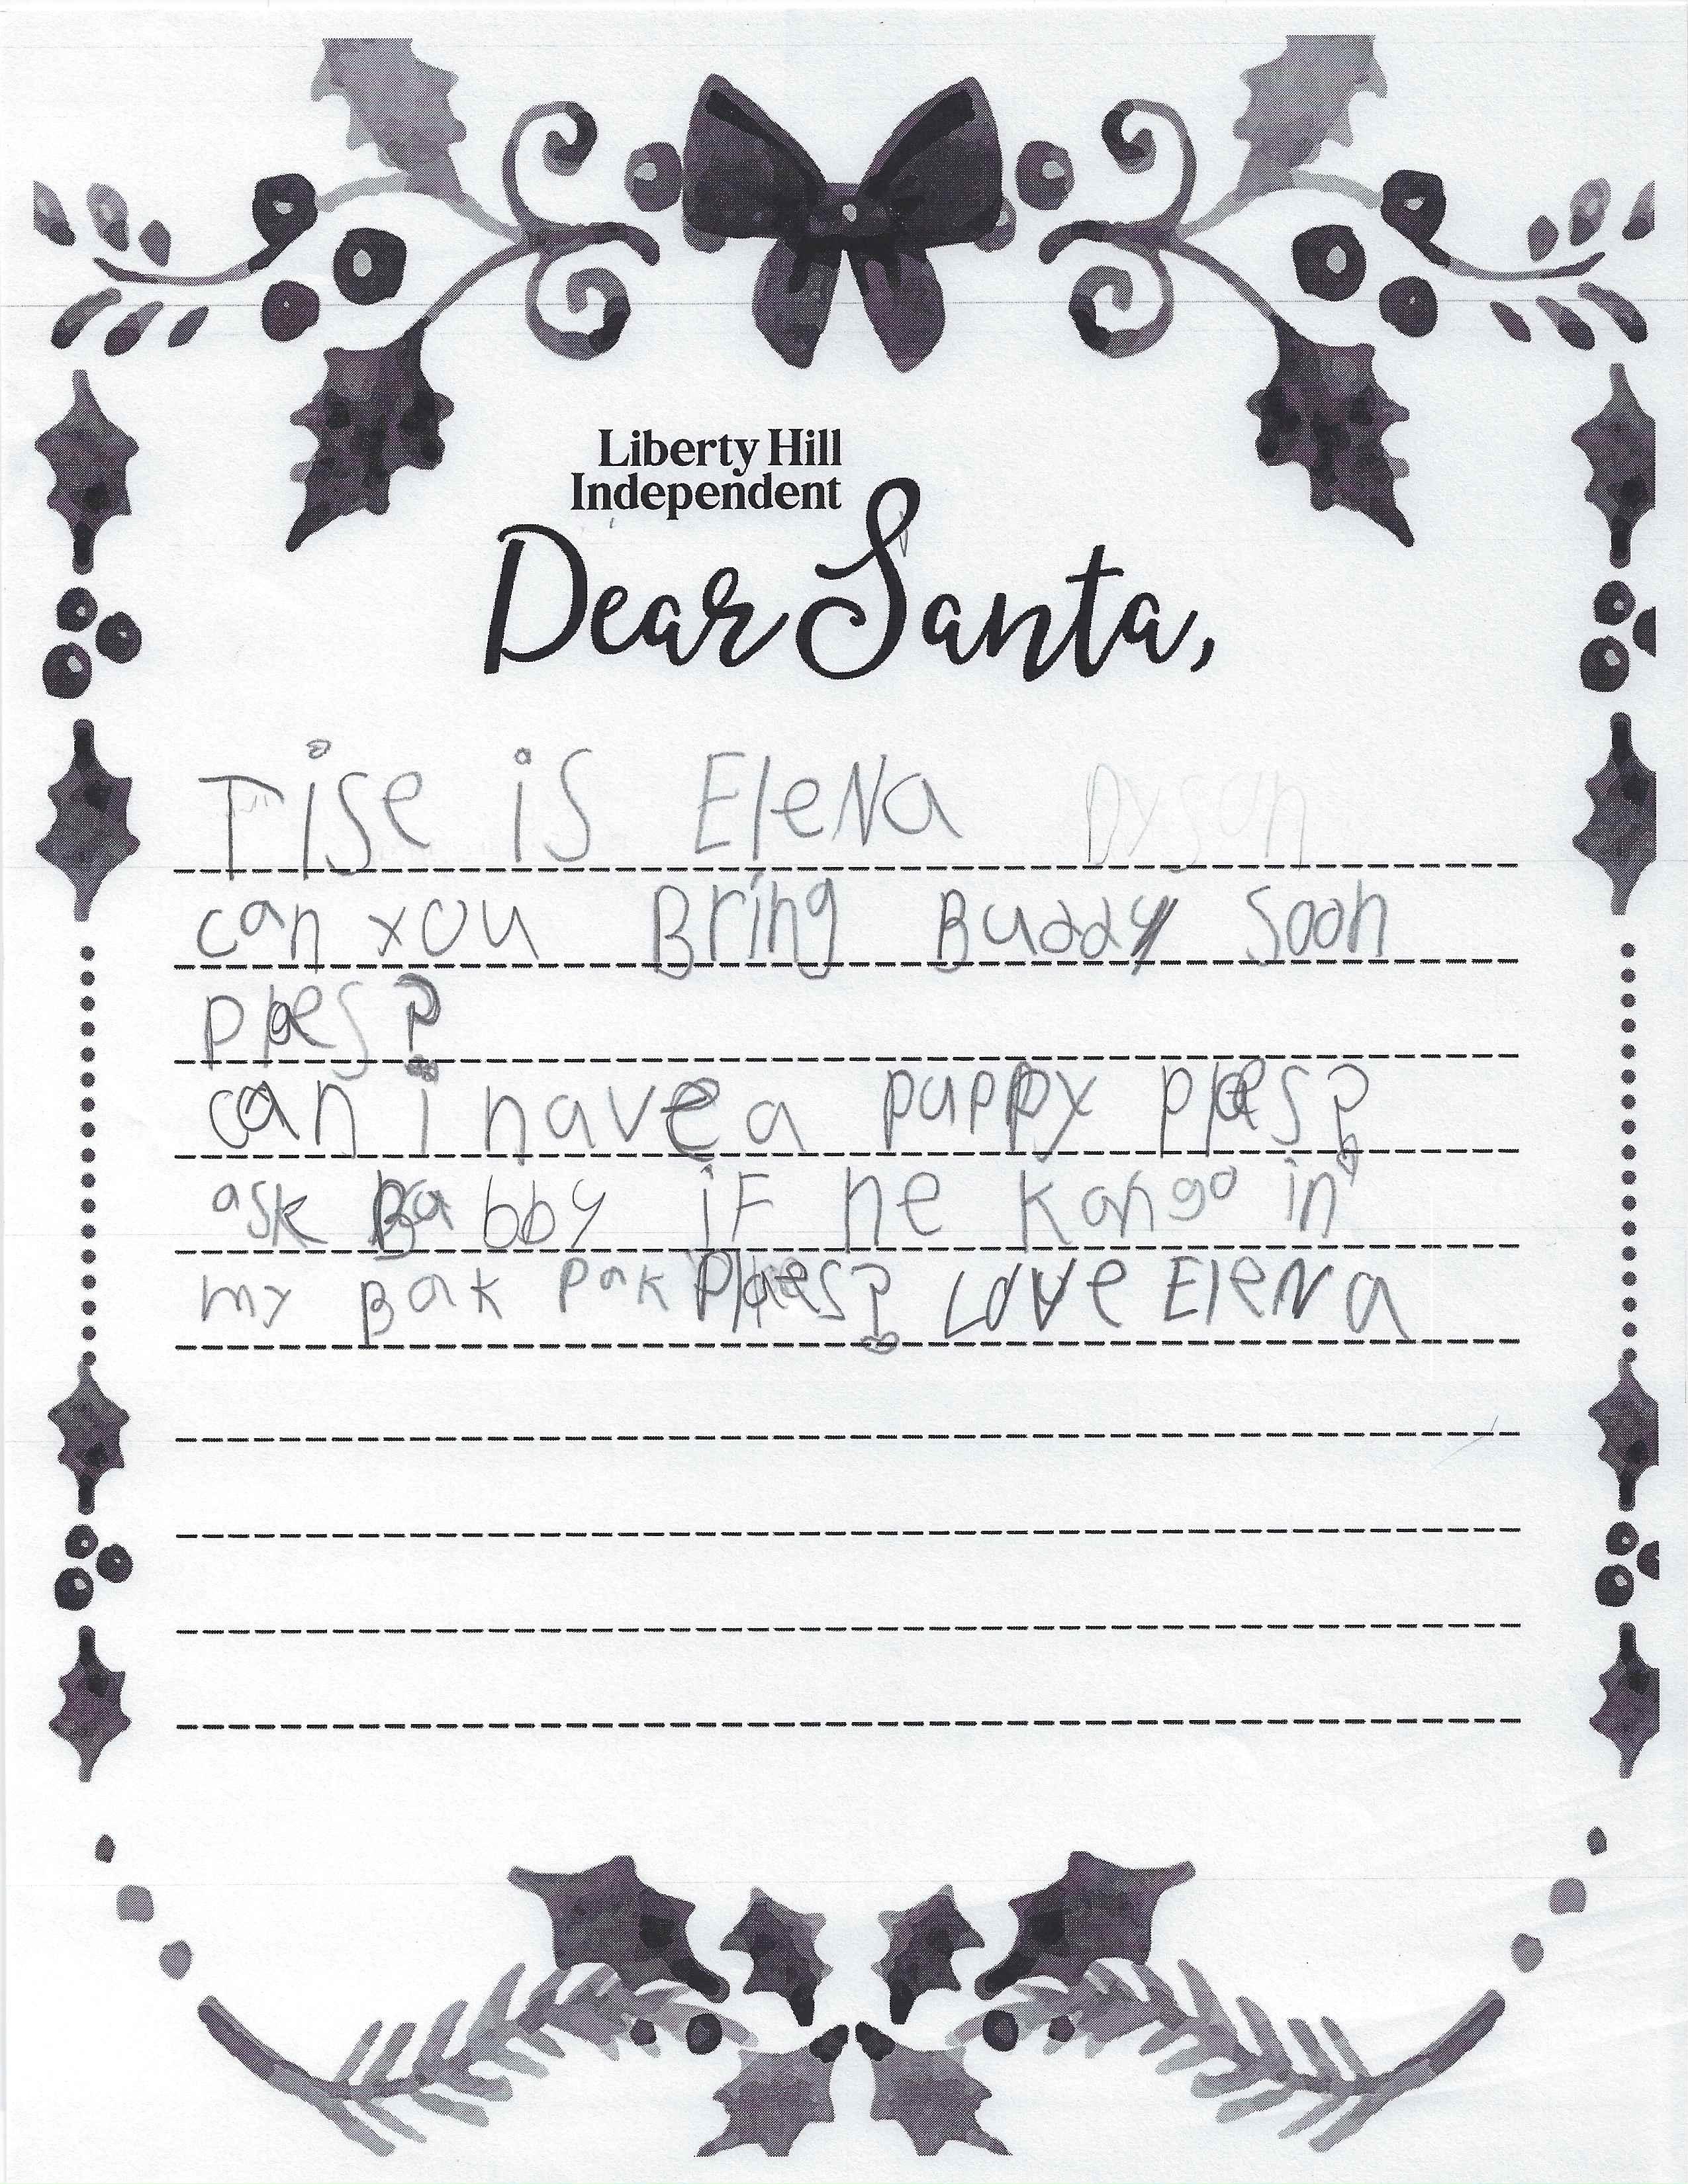 Liberty Hill
Independent
Dear Santa,
Tise is EleNa Dyson
can you Bring Buddy Soon
ples?
can i have a puppy ples?
ask Babby iF he kango in
my Bak pak Ples? Love EleNa